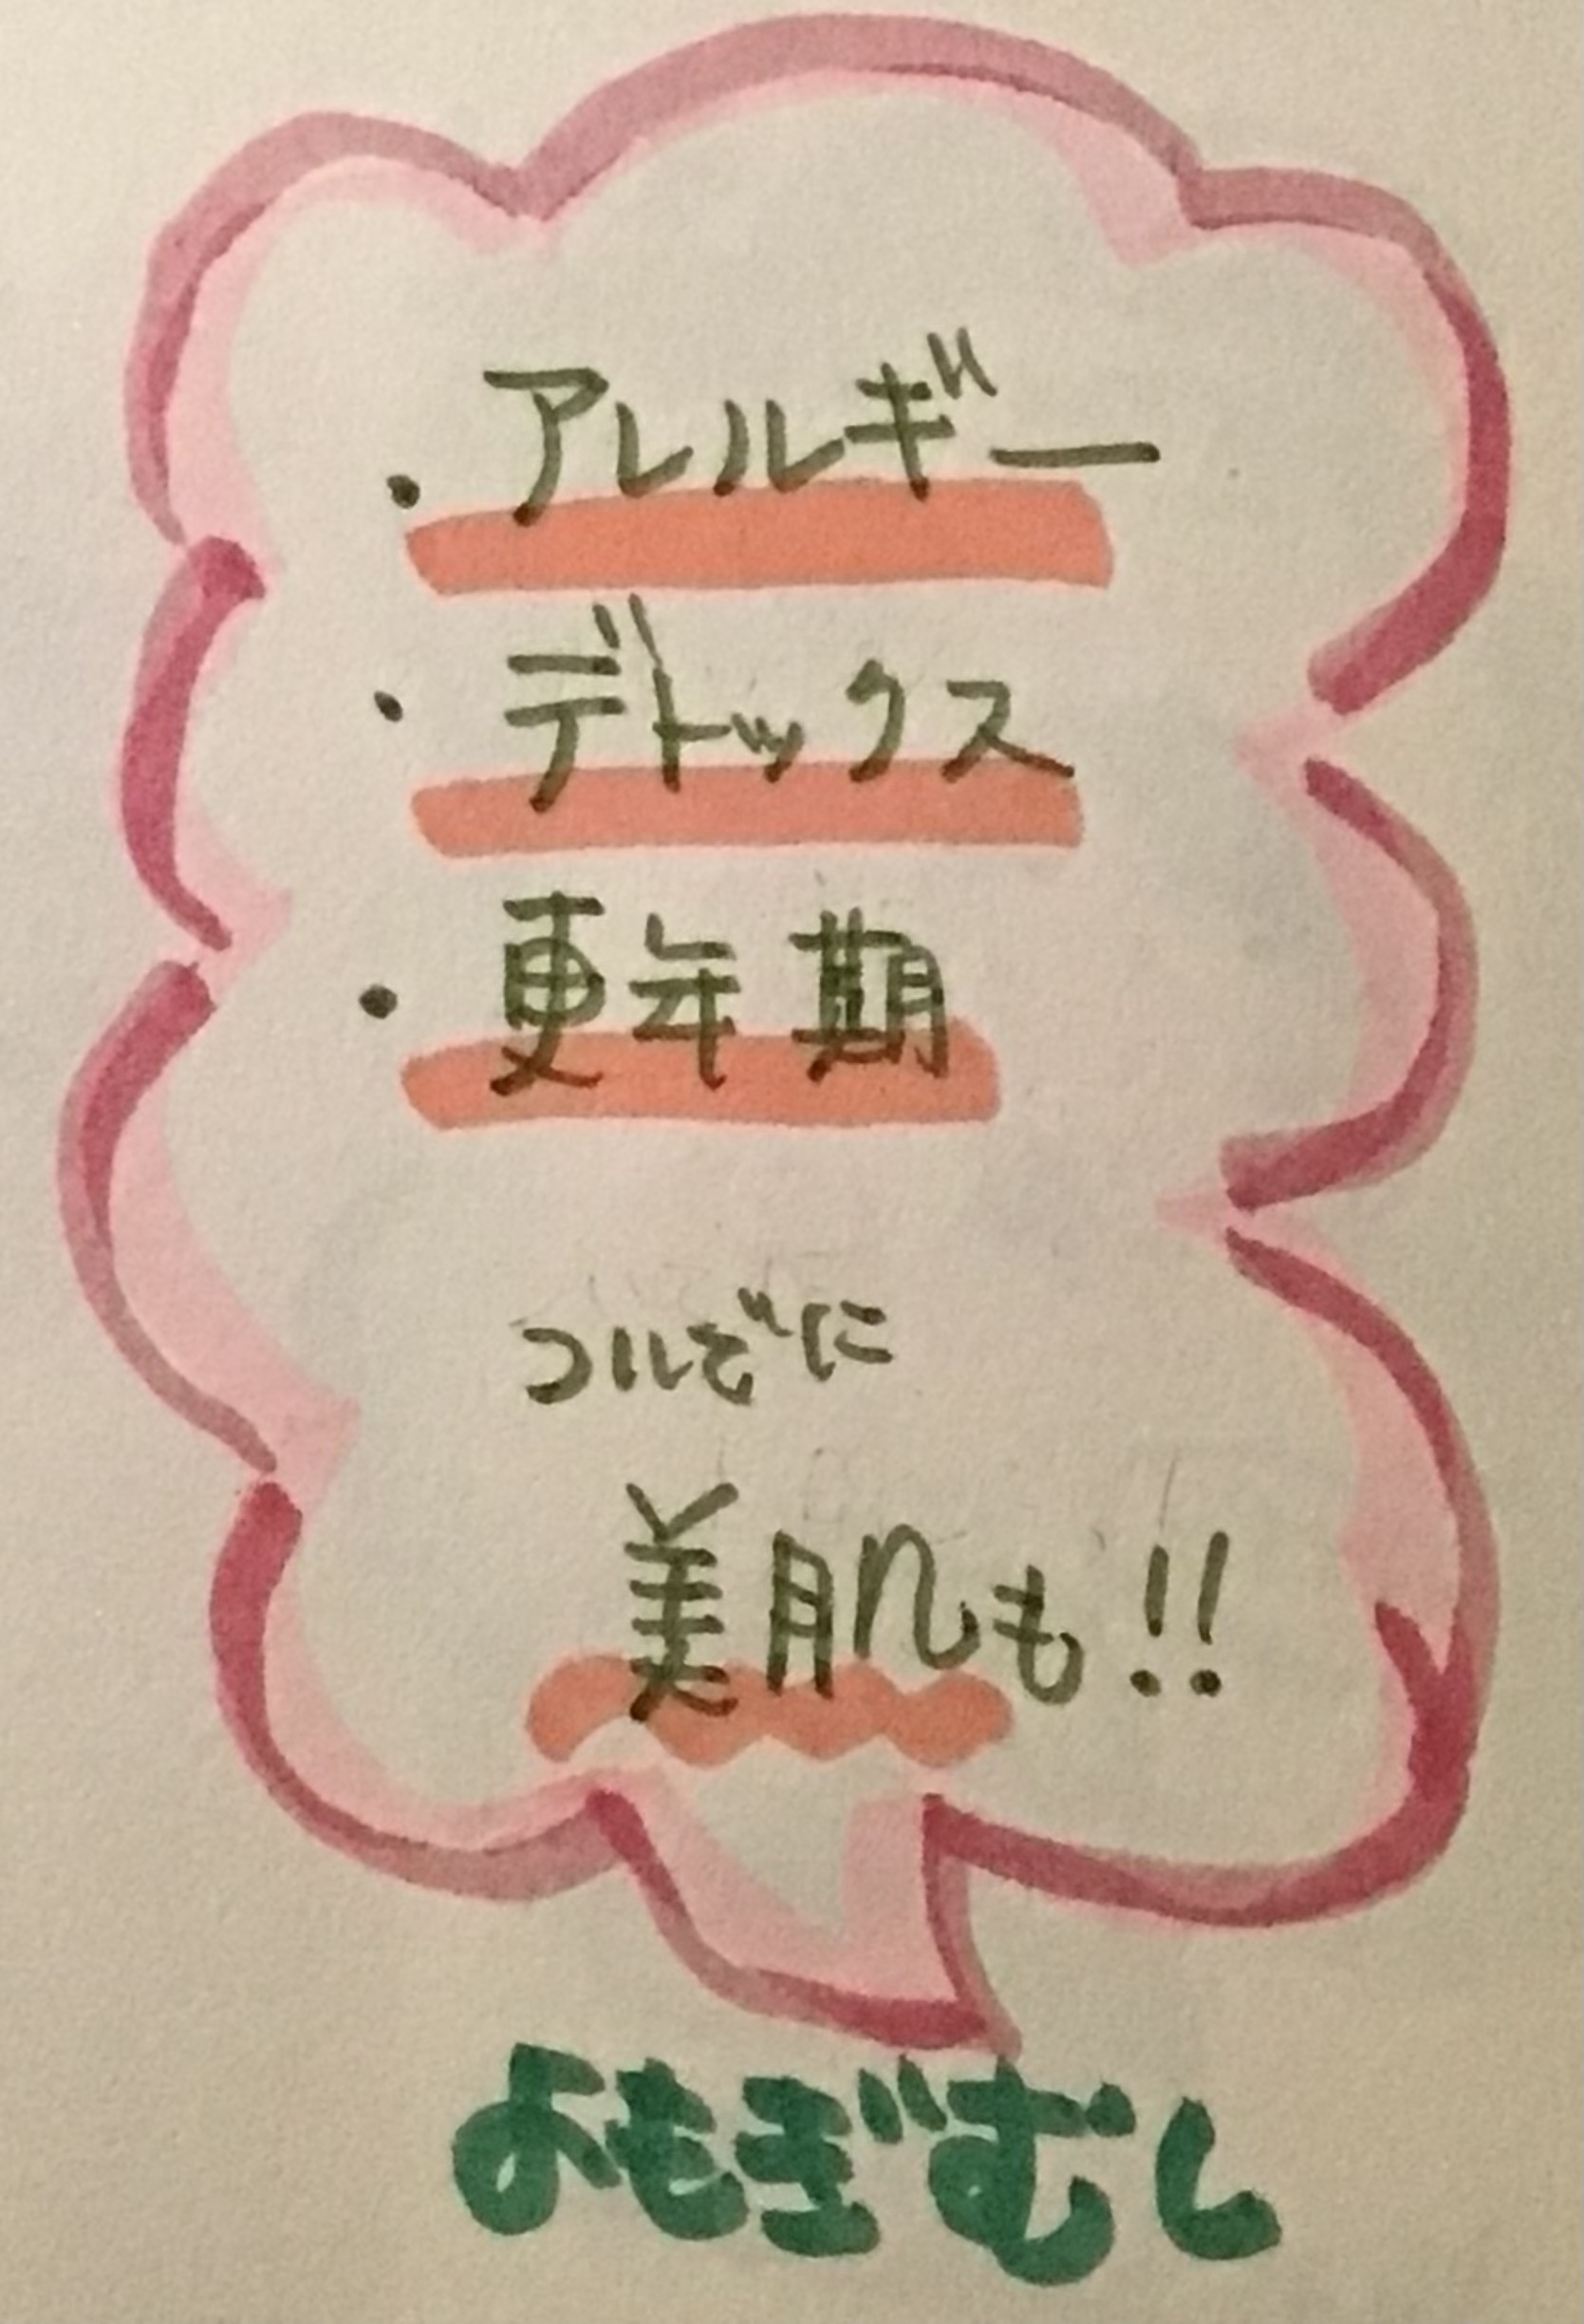 ・アレルギー
・デトックス
・更年期
ついでに
美肌も!!
よもぎむし